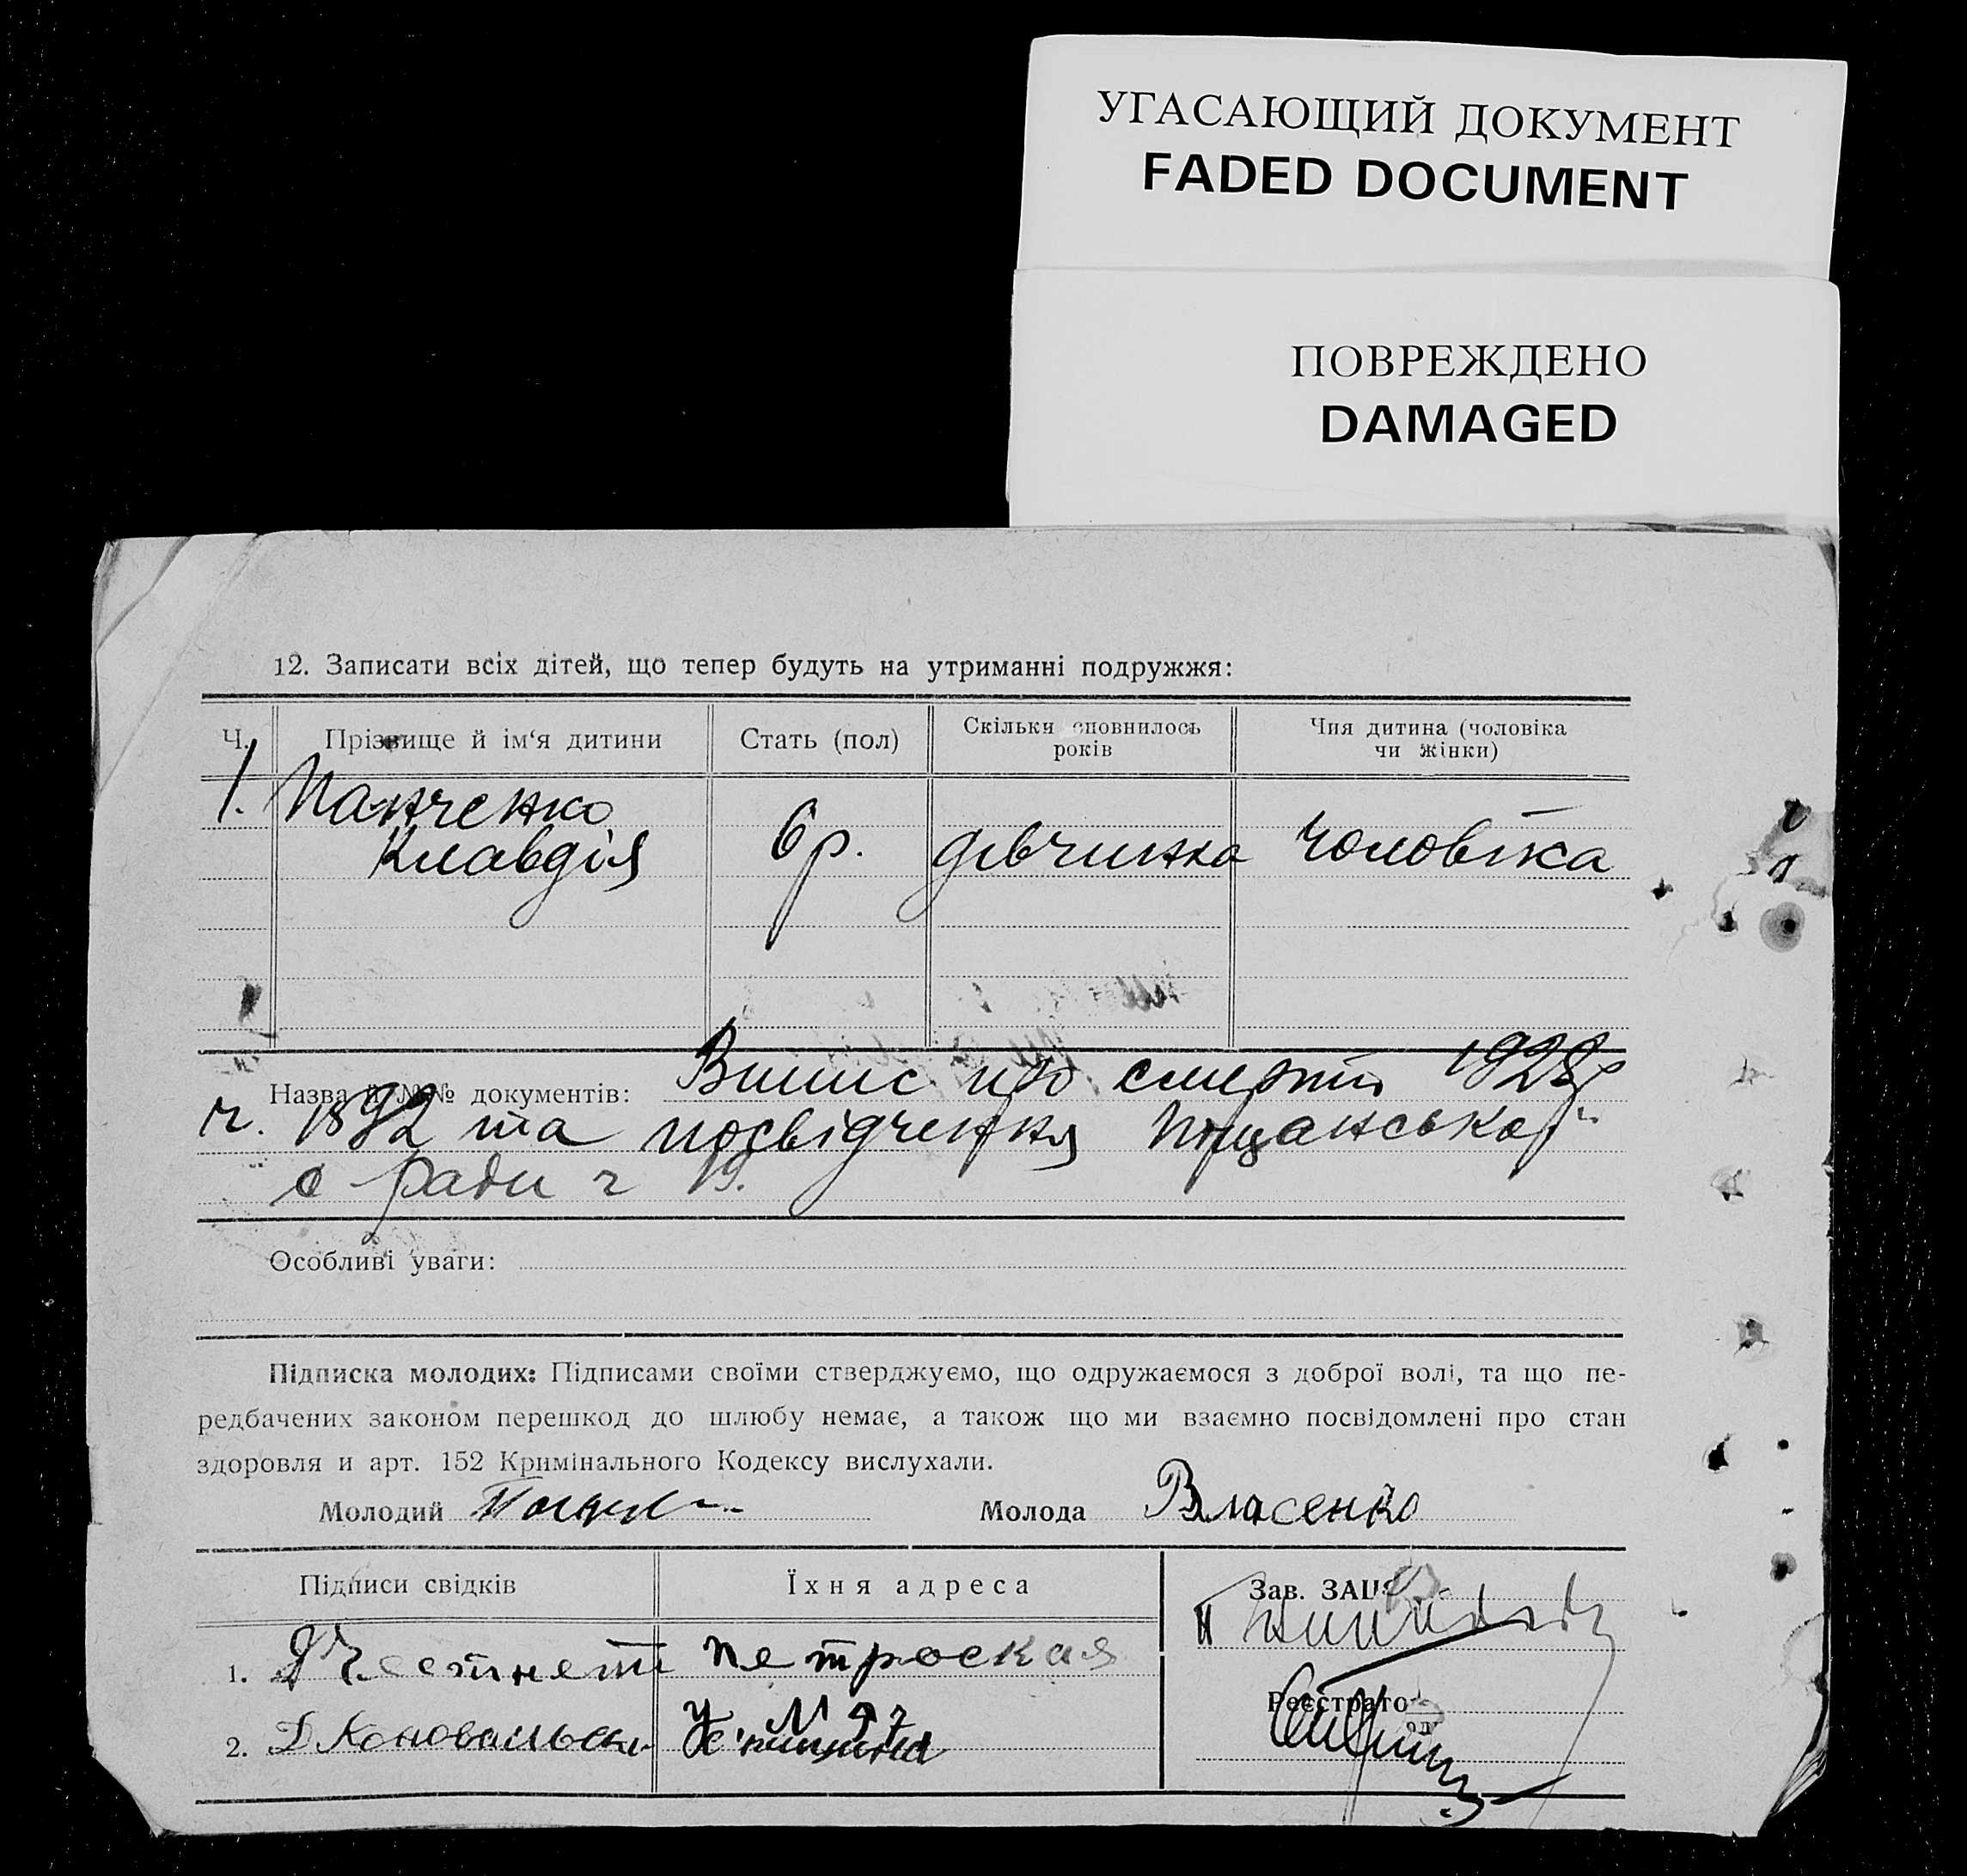 УГАСАЮЩИЙ ДОКУМЕНТ
FADED DOCUMENT
ПОВРЕЖДЕНО
DAMAGED
12. Записати всіх дітей, що тепер будуть на утриманні подружжя:
Ч. Прізвище й ім‘я дитини Стать (пол) Скільки сповнилось років Чия дитина (чоловіка чи жінки)
1. Панченко
Клавдія 6 р. дівчинка чоловіка
Назва й №№ документів: Випис про смерть 1928 р
ч. 1892 та посвідчення
с ради ч 19.
Особливі уваги:
Підписка молодих: Підписами своїми стверджуємо, що одружаємося з доброї волі, та що пе-
редбачених законом перешкод до шлюбу немає, а також що ми взаємно посвідомлені про стан
здоровля и арт. 152 Кримінального Кодексу вислухали.
Молодий Молода Власенко
Підписи свідків Їхня адреса Зав. ЗАЦС
1. Петроская
2. Д Коновальськ № 97
Реєстратор